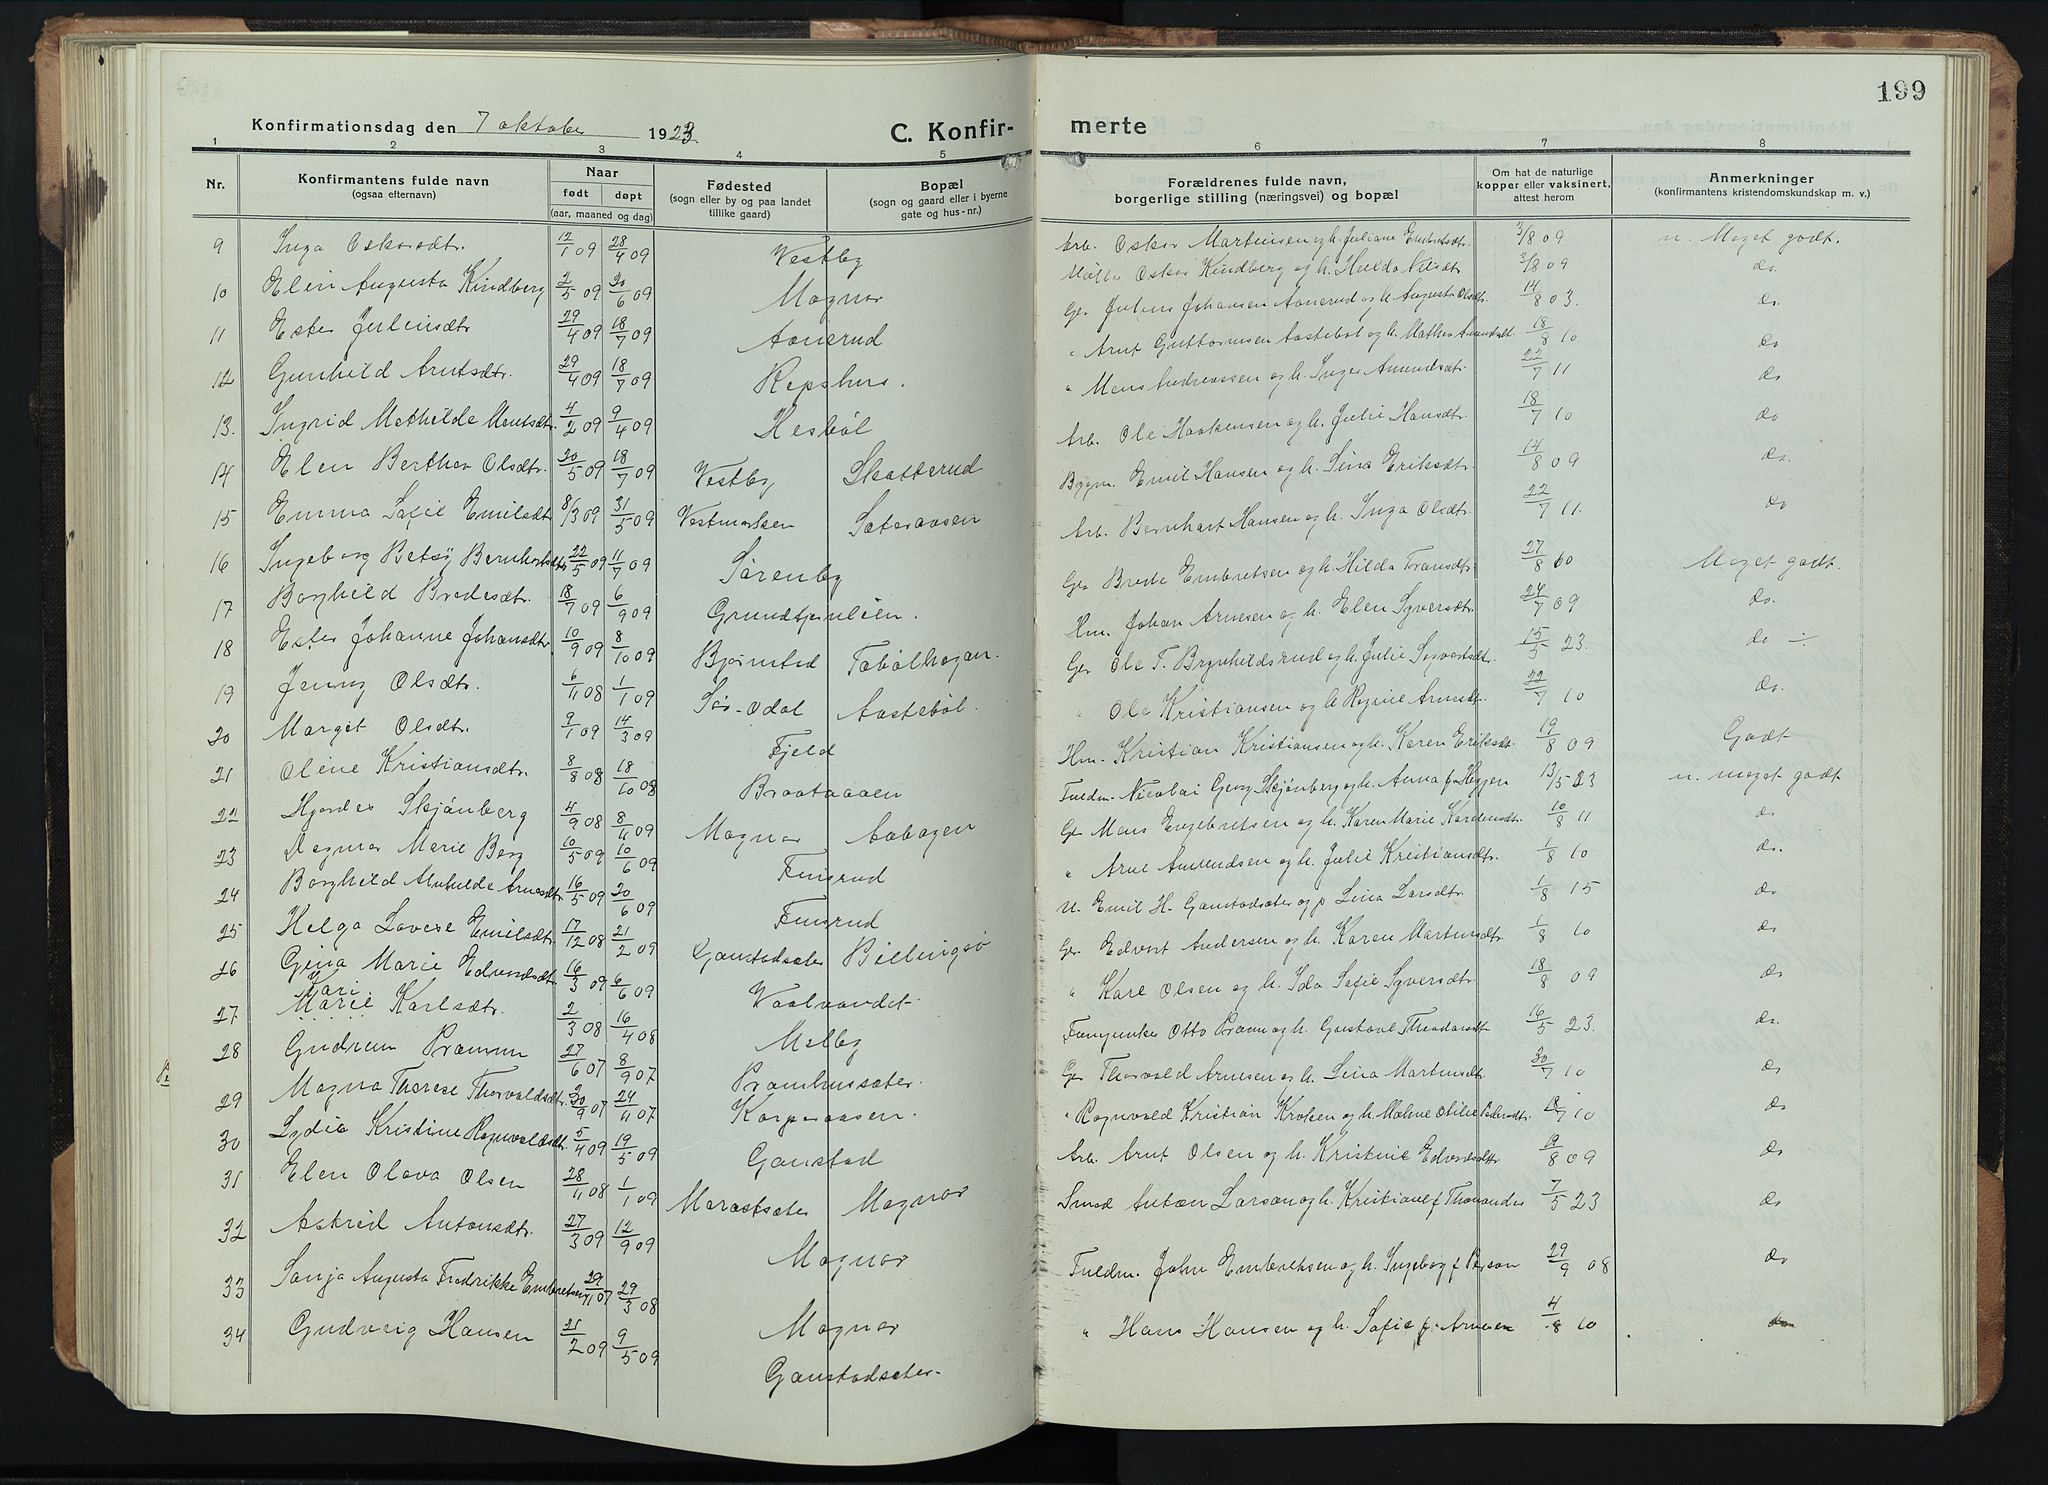 199
Konfirmationsdag den 7 oktober 1923 C. Konfir- merte
1 2 3 4 5 6 7 8
Nr. Konfirmantens fulde navn (ogsaa efternavn) Naar født døpt (aar, maaned og dag) Fødested (sogn eller by og paa landet tillike gaard) Bopæl (sogn og gaard eller i byerne gate og hus-nr.) Forældrenes fulde navn, borgerlige stilling (næringsvei) og bopæl Om hat de naturlige kopper eller vaksinert, attest herom Anmerkninger (konfirmantens kristendomskundskap m. v.)
9 Inga Oskarsdtr. 12/1 09 28/4 09 Vestby Arb. Oskar Martinsen og h. Juliane Embretsdtr. 3/8 09 n. Meget godt.
10 Elin Augusta Kindberg 2/5 09 20/6 09 Magnor Oskar Kindberg og h. Hulda Nilsdtr 3/8 09 do.
11 Ester Juliusdtr 29/4 09 18/7 09 Aanerud Gr. Julius Johansen Aanerud og h. Augusta Olsdtr. 14/8 03. do.
12 Gunhild Arntsdtr. 29/4 09 18/7 09 Repshus. " Arnt Guttormsen Aastebøl og h. Mathea Amundsdt. 18/8 10 do
13. Ingrid Mathilde Monsdtr. 4/2 09 9/4 09 Hesbøl " Mons Andreassen og h. Inger Amundsdtr. 22/7 11 do
14 Elen Berthea Olsdtr. 20/5 09 18/7 09 Vestby Skatterud Arb. Ole Haakensen og h. Julie Hansdtr. 18/7 10 do
15 Emma Sofie Emilsdtr 8/3 09 31/5 09 Vestmarken Sateraasen Bygm. Emil Hansen og h. Lina Eriksdtr. 14/8 09 do.
16 Ingeborg Betsy Bernhartsdtr 22/5 09 11/7 09 Sørenby Arb. Bernhart Hansen og h. Inga Olsdtr. 22/7 11. do
17 Borghild Bredesdtr. 18/7 09 6/9 09 Grundtjernlien. Gr. Brede Embretsen og h. Hilda Fransdtr. 27/8 60 Meget godt.
18 Ester Johanne Johansdtr 10/9 09 8/10 09 Bjørnstad Tobølhagan. Hm. Johan Arnesen og h. Elen Syversdtr. 24/7 09 do.
19 Jenny Olsdtr. 6/11 08 1/1 09 Sør-Odal Aastebøl. Gr. Ole T. Brynhildsrud og h. Julie Syvertsdt. 15/5 23. do
20 Marget Olsdtr. 9/1 09 14/3 09 Fjeld " Ole Kristiansen og h. Regine Arnesdt. 22/7 10 do.
21 Oline Kristiansdtr. 8/8 08 18/10 08 Braataaen Hm. Kristian Kristiansen og h. Karen Eriksdt. 19/8 09 Godt
22 Hjordes Skjønberg 4/9 08 8/4 09 Magnor Aabogen Fuldm. Nicolai Georg Skjønberg og h. Anna f. Heggen 13/5 23 n. meget godt
23 Dagmar Marie Berg 10/5 09 10/6 09 Finsrud Gr. Mons Engebretsen og h. Karen Marie Karelinsdt. 10/8 11 do
24 Borghild Mathilde Arnesdtr 16/5 09 20/6 09 Finsrud " Arne Amundsen og h. Julie Kristiansdtr. 1/8 10 do.
25 Helga Lovise Emilsdtr. 17/12 08 21/2 09 Gaustadsæter Billingsø U. Emil H. Gaustadsæter og p. Lina Larsdtr. 1/8 15 do
26 Gina Marie Edvardsdtr. 16/3 09 6/6 09 Vaalvandet. Gr. Edvart Andersen og h. Karen Martinsdtr 1/8 10 do
27 Kari Marie Karlsdtr. 2/3 08 16/4 08 Melby " Karl Olsen og h. Ida Sofie Syversdtr. 18/8 09 do
28 Gudrun Pramm 27/6 07 8/9 07 Pramhussæter. Otto Pramm og h. Gustava Theodorsdt 16/5 23. do.
29 Magna Therese Thorvaldsdtr. 20/9 07 24/11 07 Korperaasen. Gr. Thorvald Arnesen og h. Lina Martinsdt. 30/7 10 do
30 Lydia Kristine Ragnvaldsdtr 5/4 09 19/5 09 Gaustad " Ragnvald Kristian Kroken og h. Malene Otilie Pedersdtr. 18/7 10 do
31 Elen Olava Olsen 28/11 08 1/1 09 Morastsæter Magnor Arb. Arnt Olsen og h. Kristine Edvardsdtr 19/8 09 do
32 Astrid Antonsdtr. 27/3 09 12/9 09 Magnor Smed Anton Larsen og h. Kristiane f. Thorvandes 7/5 23 do
33 Sonja Augusta Fredrikke Embretsen 29/11 07 29/3 08 Magnor Fuldm. John Embretsen og h. Ingeborg f. Person 29/9 08 do
34 Gudveig Hansen 21/2 09 9/5 09 Gaustadsæter. " Hans Hansen og h. Sofie f. Arnesen 4/8 10 do